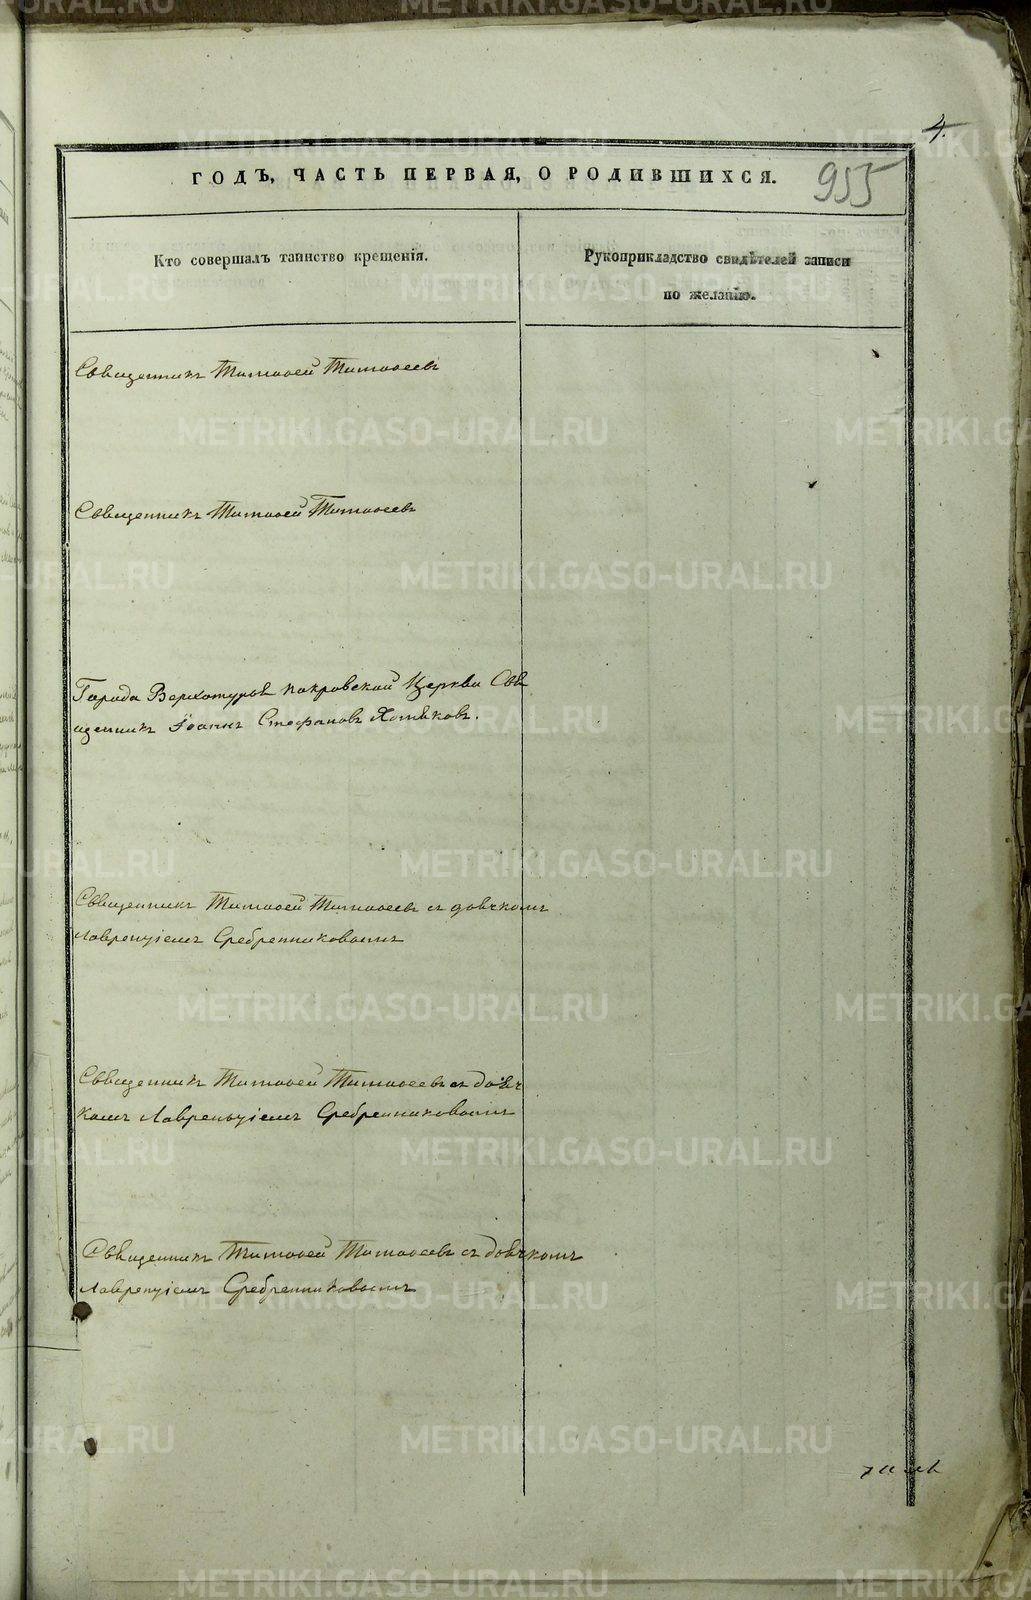 4.
955
ГОДЪ, ЧАСТЬ ПЕРВАЯ, О РОДИВШИХСЯ.
Кто совершалъ таинство крещенія.
Рукоприкладство свидѣтелей записи
по желанію.
Священникъ Тимоѳей Тимоѳеевъ
Священникъ Тимоѳей Тимоѳеевъ
Города Верхотурья покровской Церкви Свя
щенникъ Іоаннъ Стефановъ Хотѣновъ.
Священникъ Тимоѳей Тимоѳеевъ съ дьячкомъ
Лаврентіемъ Сребренниковымъ
Священникъ Тимоѳей Тимоѳеевъ съ дьяч
комъ Лаврентіемъ Сребренниковымъ
Священникъ Тимоѳей Тимоѳеевъ съ дьячкомъ
Лаврентіемъ Сребренниковымъ
METRIKI.GASO-URAL.RU